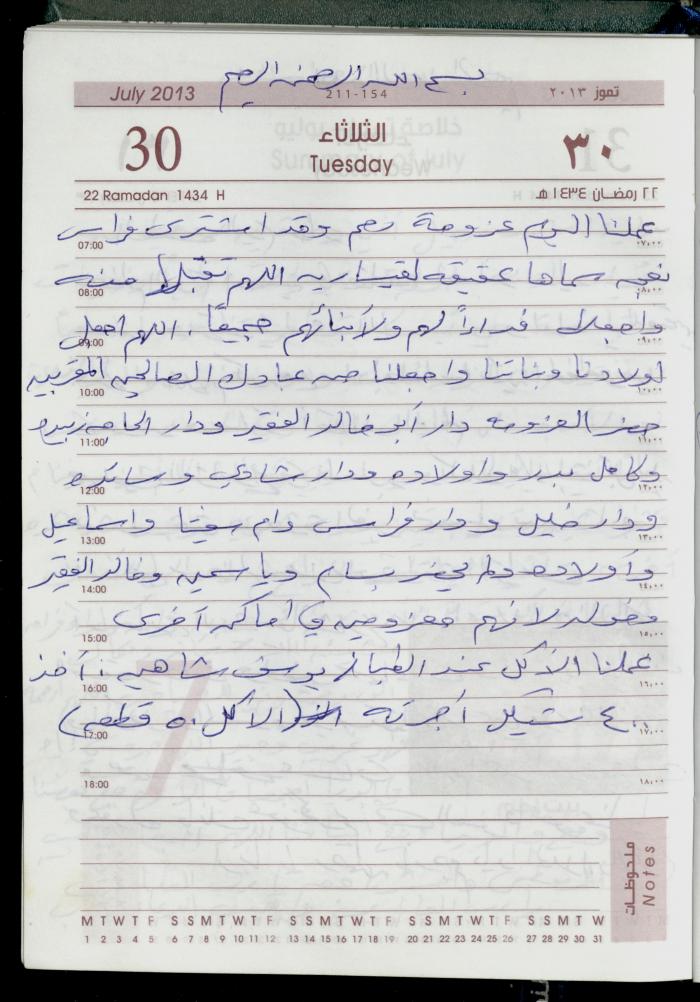 بسم الله الرحمن الرحيم
July 2013 211-154 تموز ٢٠١٣
30 الثلاثاء ٣٠
Tuesday
22 Ramadan 1434 H ٢٢ رمضان ١٤٣٤ هـ
عملنا اليوم عزومة نعم وقد اشترى فراس
07:00 ٠٧,٠٠
نعجه سماها عقيقه لقيساريه اللهم تقبل منه
08:00 ٠٨,٠٠
واجعلها فداءاً لهم ولأبنائهم جميعاً . اللهم اجعل
09:00 ٠٩,٠٠
اولادنا وبناتنا واجعلنا من عبادك الصالحين المقربين
10:00 ١٠,٠٠
حضر العزومه دار أبو خالد الفقير ودار الحاجه زبيده
11:00 ١١,٠٠
وكامل بدر واولاده ودار شادي وساكره
12:00 ١٢,٠٠
ودار خليل ودار فراس وام سفيتا واسماعيل
13:00 ١٣,٠٠
وأولاده ولم يحضر بسام وياسمين وخالد الفقير
14:00 ١٤,٠٠
وخوله لانهم معزومين في أماكن أخرى
15:00 ١٥,٠٠
عملنا الأكل عند الطباخ يوسف شاهين . أخذ
16:00 ١٦,٠٠
٤٠٠ شيكل أجرته (الأكل ٥٠ قطعه)
17:00 ١٧,٠٠
18:00 ١٨,٠٠
ملحوظات
Notes
M T W T F S S M T W T F S S M T W T F S S M T W T F S S M T W
1 2 3 4 5 6 7 8 9 10 11 12 13 14 15 16 17 18 19 20 21 22 23 24 25 26 27 28 29 30 31